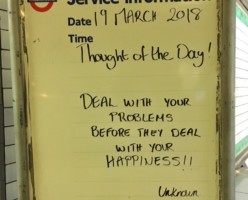 Service Information
Date 19 MARCH 2018
Time
Thought of the Day!
DEAL WITH YOUR
PROBLEMS
BEFORE THEY DEAL
WITH YOUR
HAPPINESS!!
Unknown